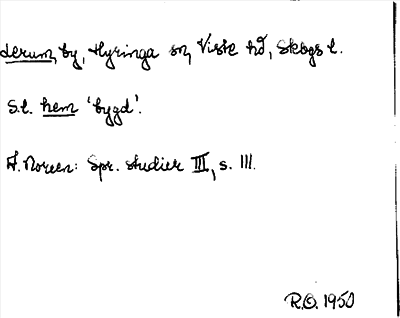 derum, by, Hyringa sn, Viste hd, Skogs l.
S.l. hem 'bygd'.
A. Noreen: Spr. studier III, s. 111.
R.O. 1950